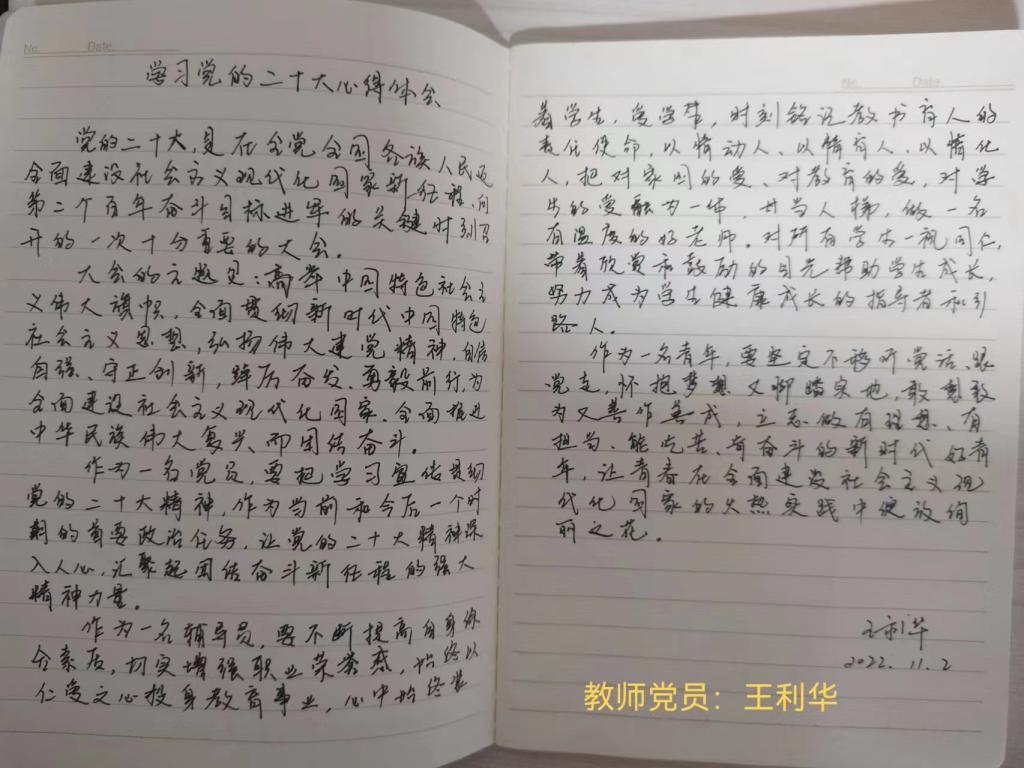 No.
Date.
学习党的二十大心得体会
党的二十大,是在全党全国各族人民迈
全面建设社会主义现代化国家新征程、向
第二个百年奋斗目标进军的关键时刻召
开的一次十分重要的大会。
大会的主题是:高举中国特色社会主
义伟大旗帜,全面贯彻新时代中国特色
社会主义思想,弘扬伟大建党精神,自信
自强、守正创新,踔厉奋发、勇毅前行,为
全面建设社会主义现代化国家、全面推进
中华民族伟大复兴而团结奋斗。
作为一名党员,要把学习宣传贯彻
党的二十大精神,作为当前和今后一个时
期的首要政治任务,让党的二十大精神深
入人心,汇聚起团结奋斗新征程的强大
精神力量。
作为一名辅导员,要不断提高自身综
合素质,切实增强职业荣誉感,始终以
仁爱之心投身教育事业,心中始终装
No.
Date.
着学生,爱学生,时刻铭记教书育人的
责任使命,以情动人、以情育人、以情化
人,把对家国的爱、对教育的爱、对学
生的爱融为一体,甘当人梯,做一名
有温度的好老师。对所有学生一视同仁,
带着欣赏和鼓励的目光帮助学生成长,
努力成为学生健康成长的指导者和引
路人。
作为一名青年,要坚定不移听党话、跟
党走,怀抱梦想又脚踏实地,敢想敢
为又善作善成,立志做有理想、有
担当、能吃苦、肯奋斗的新时代好青
年,让青春在全面建设社会主义现
代化国家的火热实践中绽放绚
丽之花。
王利华
2022.11.2
教师党员：王利华